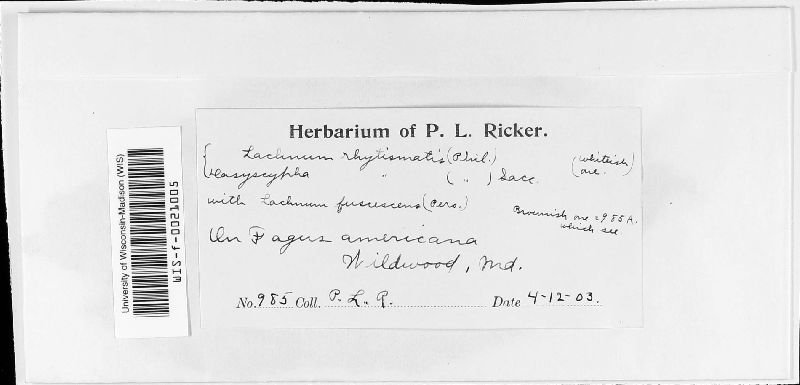 Herbarium of P. L. Ricker.
{ Lachnum rhytismatis (Phil.) (whiteish)
Dasyscypha " ( " ) Sacc. ( one. )
with Lachnum fuscescens (Pers.) Brownish one = 985A.
which see
On Fagus americana
Wildwood, Md.
No. 985 Coll. P. L. R. Date 4-12-03.
University of Wisconsin-Madison (WIS)
WIS-f-0021005